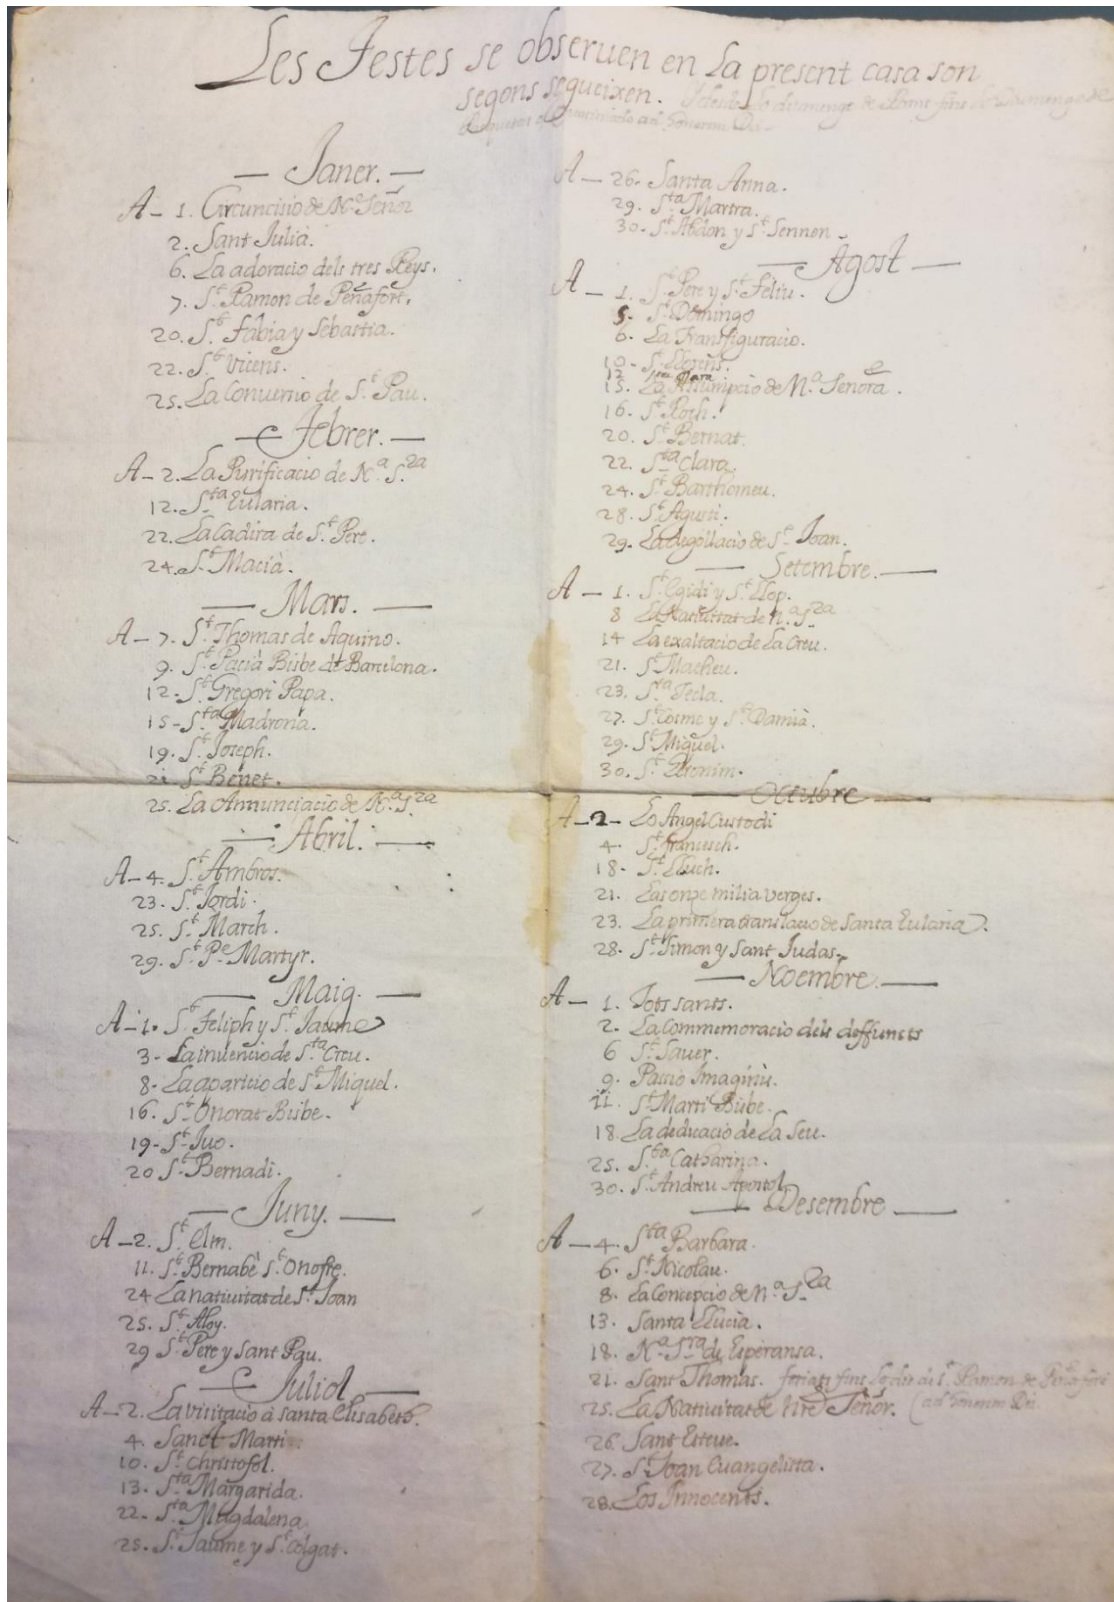 Les Festes se obseruen en La present casa son
segons segueixen. Y desde lo diumenge de Rams fins lo Diumenge de
ad honorem Dei
— Janer. —
A— 1. Circuncisio de N.º Señor
2. Sant Julià.
6. La adoracio dels tres Reys.
7. S.t Ramon de Peñafort.
20. S.t Fabia y Sebastia.
22. S.t Vicens.
25. La Conuersio de S.t Pau.
— Febrer. —
A— 2. La Purificacio de N.a S.ra
12. S.ta Eularia.
22. La Cadira de S.t Pere.
24. S.t Macià.
— Mars. —
A— 7. S.t Thomas de Aquino.
9. S.t Pacià Bisbe de Barcelona.
12- S.t Gregori Papa.
15- S.ta Madrona.
19. S.t Joseph.
21. S.t Benet.
25. La Annunciacio de N.a S.ra
— Abril. —
A— 4. S.t Ambros.
23. S.t Jordi.
25. S.t March.
29. S.t P.e Martyr.
— Maig. —
A— 1. S.t Feliph y S.t Jaume
3- La inuencio de S.ta Creu.
8- La aparicio de S.t Miquel.
16. S.t Onorat Bisbe.
19- S.t Iuo.
20 S.t Bernadi.
— Juny. —
A— 2. S.t Elm.
11. S.t Bernabè S.t Onofre.
24 La natiuitat de S.t Joan
25. S.t Aloy.
29 S.t Pere y Sant Pau.
— Juliol —
A— 2. La visitacio à santa Elisabeth.
4. Sanct Marti
10. S.t Christofol.
13. S.ta Margarida.
22- S.ta Magdalena
25. S.t Jaume y S.t Colgat.
A— 26. Santa Anna.
29. S.ta Martra.
30. S.t Abdon y S.t Sennen
— Agost —
A— 1. S.t Pere y S.t Feliu.
5. S.t Domingo
6. La Transfiguracio.
10- S.t Llorens.
12 Clara
15. La Assumpcio de N.a Senora.
16. S.t Roch.
20. S.t Bernat.
22. S.ta Clara
24. S.t Barthomeu.
28. S.t Agusti.
29. La degollacio de S.t Joan.
— Setembre. —
A— 1. S.t Egidi y S.t Llop.
8 La Natiuitat de N.a S.ra
14 La exaltacio de La Creu.
21. S.t Matheu.
23. S.ta Tecla.
27. S.t Cosme y S.t Damià.
29. S.t Miquel.
30. S.t Geronim.
— Octubre —
A— 2- Lo Angel Custodi
4- S.t Francesch.
18- S.t Lluch.
21. Las onze milia verges.
23. La primera translacio de Santa Eularia.
28- S.t Simon y Sant Judas.
— Noembre. —
A— 1. Tots sants.
2- La Commemoracio dels deffuncts
6 S.t Seuer.
9. Passio Imaginis.
11. S.t Marti Bisbe.
18. La dedicacio de La Seu.
25. S.ta Catharina.
30. S.t Andreu Apostol
— Desembre —
A— 4. S.ta Barbara.
6. S.t Nicolau.
8. La Concepcio de N.a S.ra
13. Santa Llucia.
18. N.a S.ra de Esperansa.
21. Sant Thomas. feriats fins lo die de S.t Ramon de Peñafort
25. La Natiuitat de Nre Señor. (ad honorem Dei
26. Sant Esteue.
27. S.t Joan Euangelista.
28. Los Innocents.